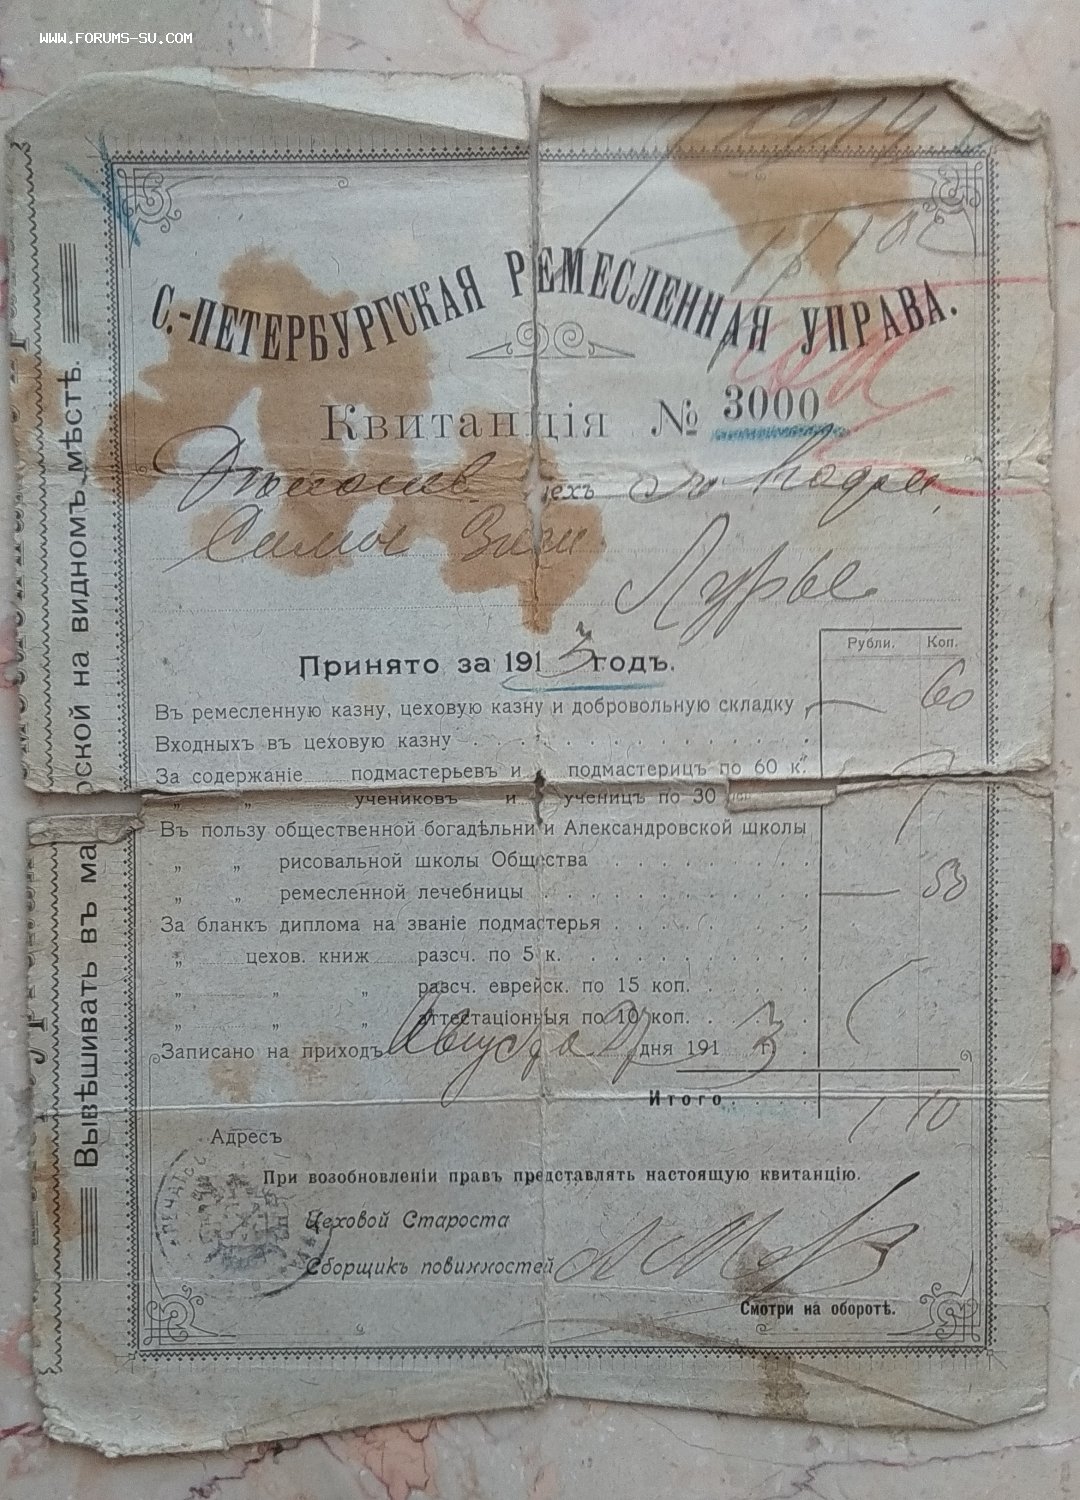 WWW.FORUMS-SU.COM
1914
С.-ПЕТЕРБУРГСКАЯ РЕМЕСЛЕННАЯ УПРАВА.
Квитанція № 3000
цехъ
Лурье
Принято за 1913 годъ.
Рубли. Коп.
Въ ремесленную казну, цеховую казну и добровольную складку — 60
Входныхъ въ цеховую казну
За содержаніе подмастерьевъ и подмастерицъ по 60 к.
„ „ учениковъ и ученицъ по 30
Въ пользу общественной богадѣльни и Александровской школы
„ „ рисовальной школы Общества
„ „ ремесленной лечебницы — 50
За бланкъ диплома на званіе подмастерья
„ цехов. книж разсч. по 5 к.
„ „ „ разсч. еврейск. по 15 коп.
„ „ „ аттестаціонныя по 10 коп.
Записано на приходъ Августа дня 1913 г.
Итого 1 10
Адресъ
При возобновленіи правъ представлять настоящую квитанцію.
Цеховой Староста
Сборщикъ повинностей
Смотри на оборотѣ.
Вывѣшивать въ ма рской на видномъ мѣстѣ.